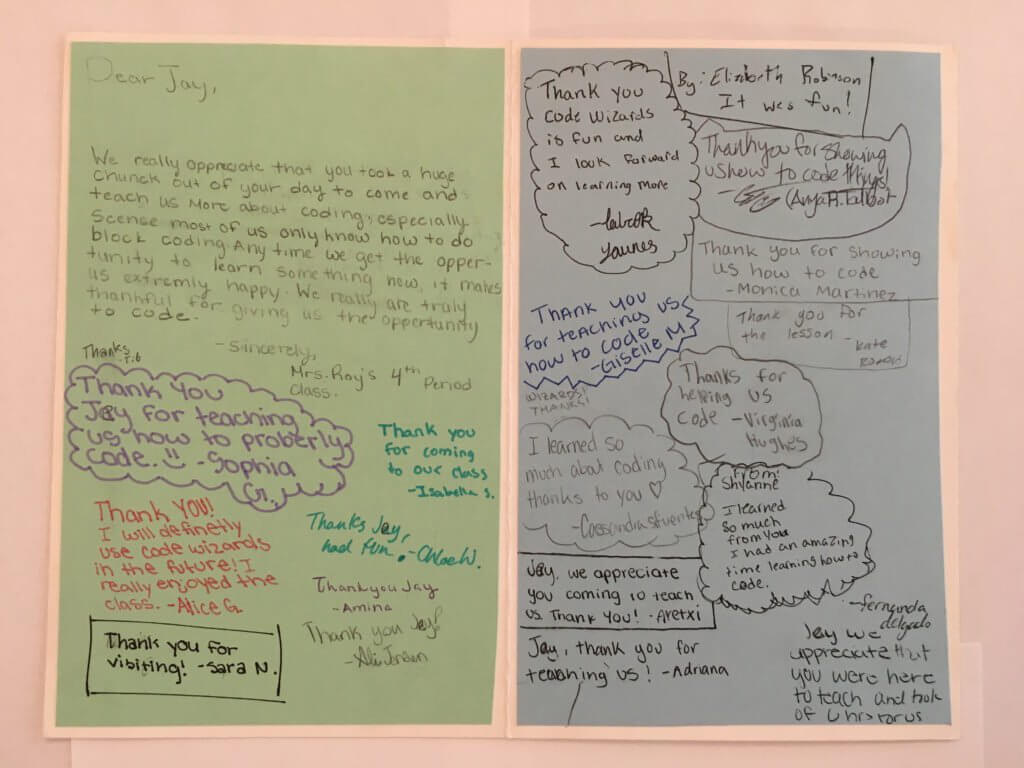 Dear Jay,
We really appreciate that you took a huge
Chunck out of your day to come and
teach us more about coding, especially
Scense most of us only know how to do
block coding. Any time we get the opper-
tunity to learn something new, it makes
us extremly happy. We really are truly
thankful for giving us the opportunity
to code.
-Sincerely,
Mrs. Roy's 4th Period
Class.
Thanks
Thank You
Jay for teaching
us how to proberly
code. -Sophia
G.
Thank you
for coming
to our class
-Isabella S.
Thank YOU!
I will definetly
use code wizards
in the future! I
really enjoyed the
class. -Alice G.
Thanks Jay,
had fun. -Chloe W.
Thankyou Jay
-Amina
Thank you Jay!
-Ali Jordan
Thank you for
vibiting! -Sara N.
Thank you
Code Wizards
is fun and
I look forward
on learning more
Younes
By: Elizabeth Robinson
It was fun!
Thankyou for showing
us how to code things!
(Anya R. Talbot
Thank you for showing
us how to code
-Monica Martinez
Thank you for
the lesson -Kate
THANK YOU
for teaching us
how to code
-Giselle M
WIZARDS!
THANKS!
Thanks for
helping us
code -Virginia
Hughes
I learned so
much about coding
thanks to you ♡
-Cassandra Sifuentes
From:
Shyanne
I learned
so much
from you
I had an amazing
time learning how to
code.
Jay, we appreciate
you coming to teach
us. Thank You! -Aretxi
Jay, thank you for
teaching us! -Adriana
-fernanda
delgado
Jay we
appreciate that
you were here
to teach and took
of